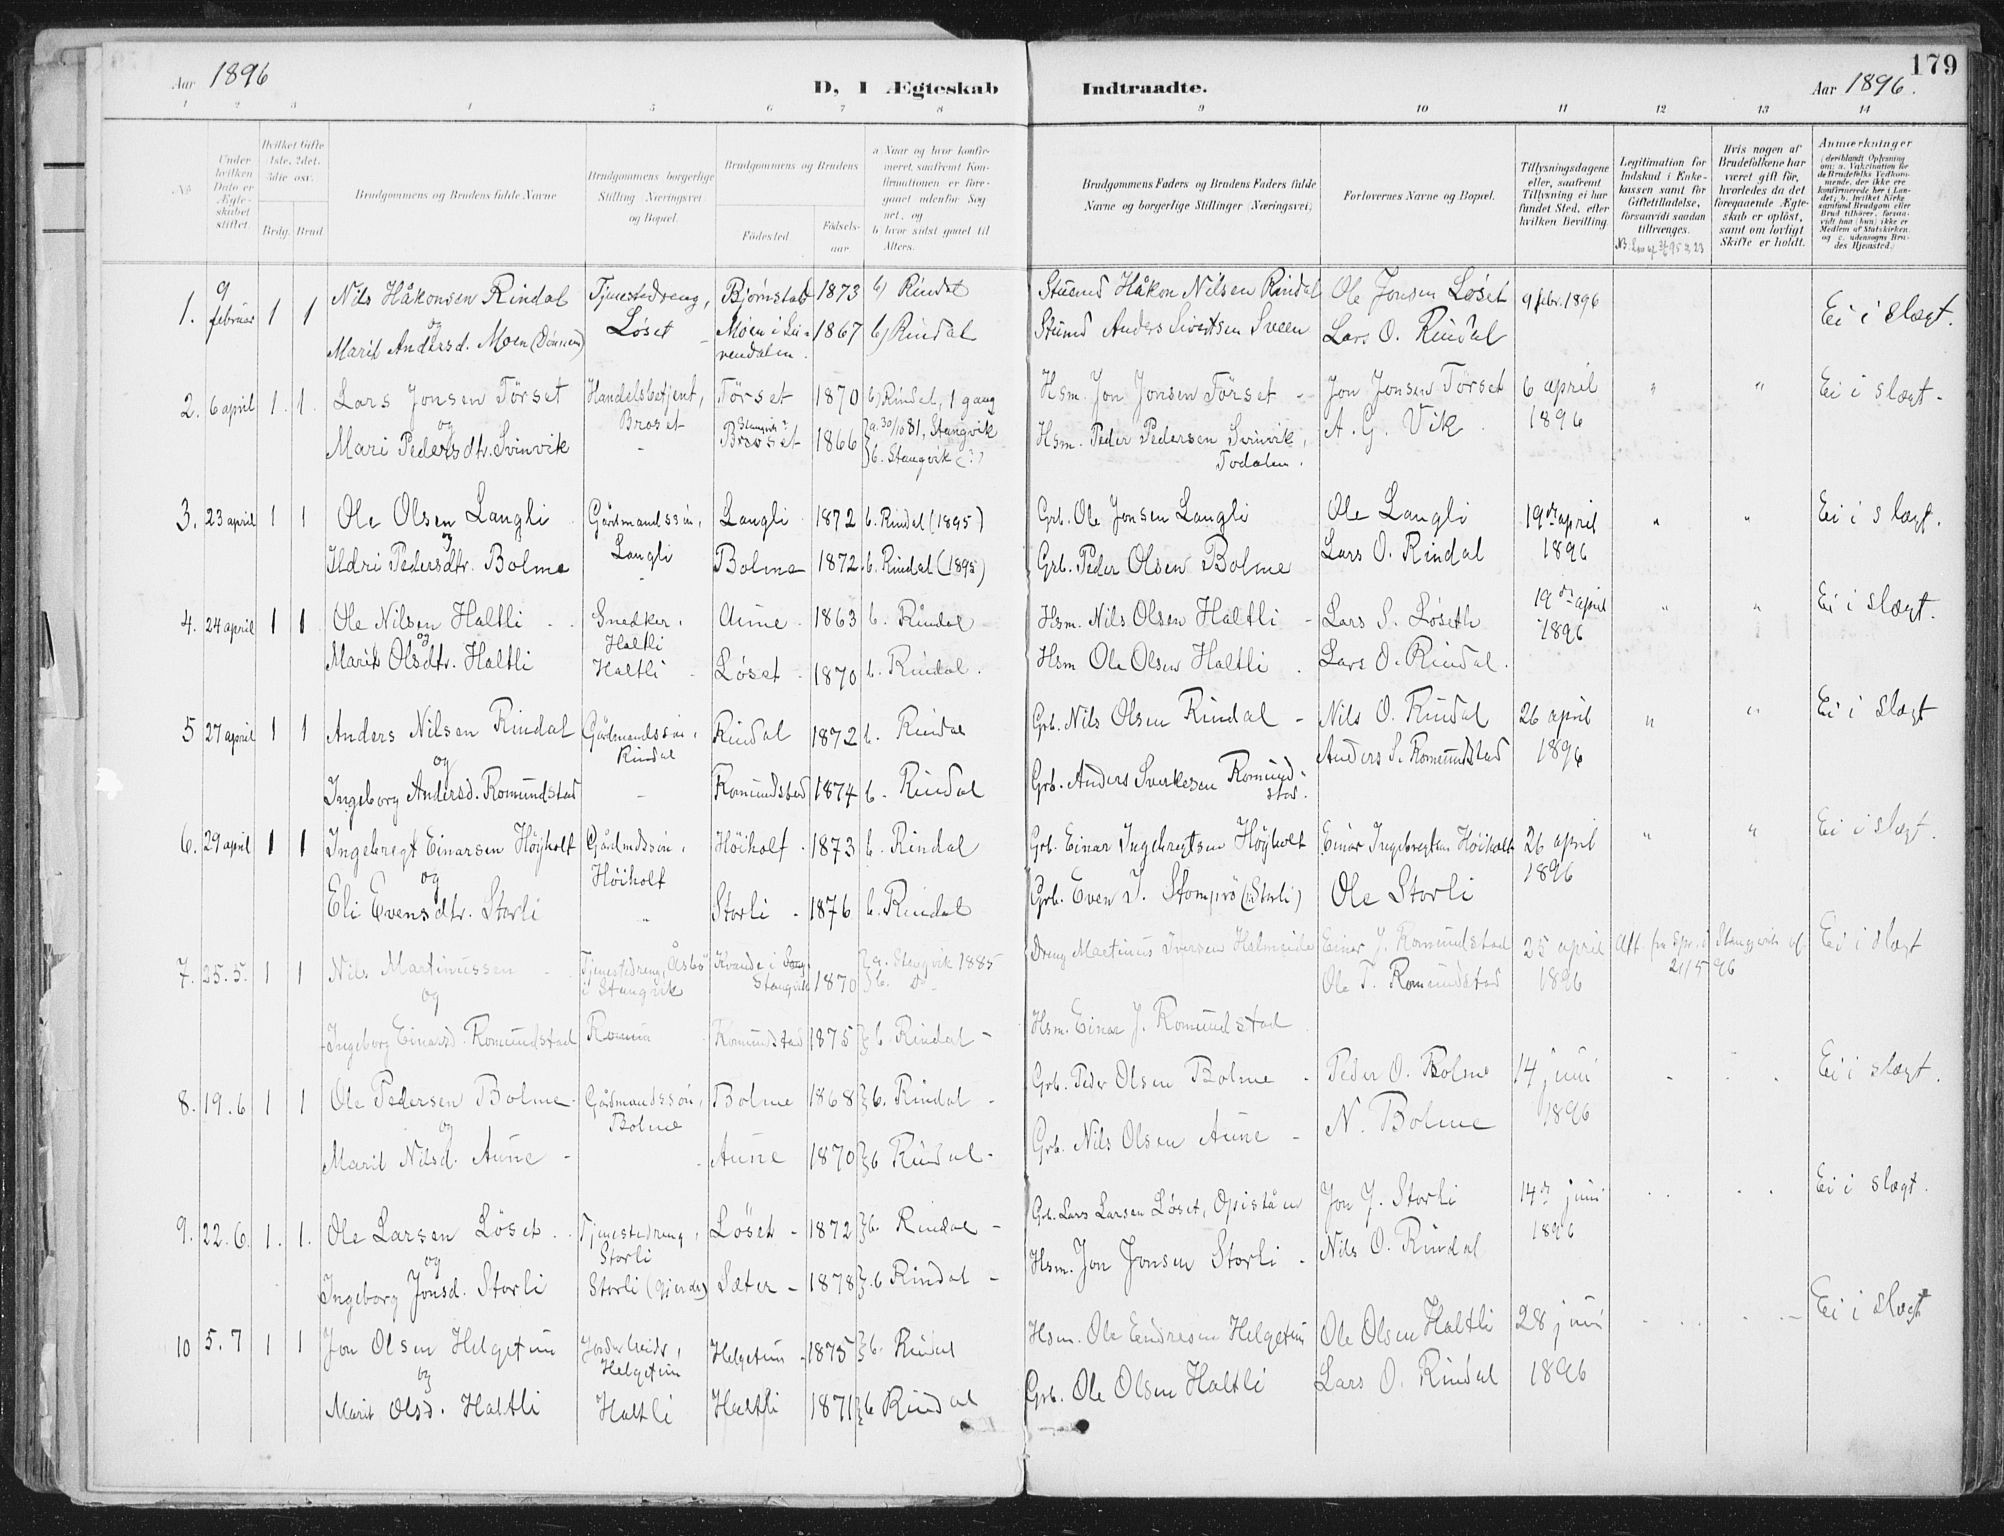 Aar 1896
D, I Ægteskab
Indtraadte.
Aar 1896.
179
1 2 3 4 5 6 7 8 9 10 11 12 13 14
No
Under hvilken Dato er Ægteskabet stiftet.
Hvilket Gifte (1ste, 2det, 3die osv.)
Brdg. Brud
Brudgommens og Brudens fulde Navne
Brudgommens borgerlige Stilling (Næringsvei) og Bopæl.
Brudgommens og Brudens
Fødested.
Fødselsaar.
a Naar og hvor konfirmeret, saafremt Konfirmationen er foregaaet udenfor Sognet, og
b hvor sidst gaaet til Alters.
Brudgommens Faders og Brudens Faders fulde Navne og borgerlige Stillinger (Næringsvei.)
Forlovernes Navne og Bopæl.
Tillysningsdagene eller, saafremt Tillysning ei har fundet Sted, efter hvilken Bevilling
Legitimation for Indskud i Enkekassen samt for Giftetilladelse, forsaavidt saadan tiltrænges.
Hvis nogen af Brudefolkene har været gift før, hvorledes da det foregaaende Ægteskab er opløst, samt om lovligt Skifte er holdt.
Anmærkninger
1. 9 februar 1 1 Nils Håkonsen Rindal Tjenestedreng, Bjørnstad 1873 b) Rindal Håkon Nilsen Rindal Ole Jonsen Løset 9 febr. 1896 Ei i slægt.
og Løset
Marit Andersd. Moen Moen i 1867 b) Rindal Anders Sivertsen Sveen Lars O. Rindal
2. 6 april 1. 1. Lars Jonsen Tørset Handelsbetjent, Tørset 1870 b) Rindal, 1 gang Hsm. Jon Jonsen Tørset - Jon Jonsen Tørset 6 april " " Ei i slægt -
og Broset
Mari Pedersdtr. Svinvik - 1866 a. 30/10 81, Stangvik Hsm. Peder Pedersen Svinvik, A. G. Vik 1896
b. Stangvik (?) Todalen.
3. 23 april 1 1 Ole Olsen Langli Gårdmandssøn, Langli 1872 b. Rindal (1895) Grb. Ole Jonsen Langli Ole Langli 19de april " " Ei i slægt.
og Langli
Ildri Pedersdtr. Bolme Bolme 1872 b. Rindal (1895) Grb. Peder Olsen Bolme Lars O. Rindal 1896
4. 24 april 1 1 Ole Nilsen Haltli Snedker, Aune 1863 b. Rindal Hsm. Nils Olsen Haltli - Lars S. Løseth 19de april " " Ei i slægt.
og Haltli
Marit Olsdtr. Haltli Haltli Løset 1870 b. Rindal. Hsm Ole Olsen Haltli Lars O. Rindal. 1896
5 27 april 1 1 Anders Nilsen Rindal Gårdmandssøn, Rindal 1872 b. Rindal Grb. Nils Olsen Rindal - Nils O. Rindal 26 april " " Ei i slægt
og Rindal
Ingeborg Andersd. Romundstad - Romundstad 1874 b. Rindal Grb. Anders Sverkesen Romundstad. Anders S. Romundstad 1896
6. 29 april 1 1 Ingebrigt Einarsen Höjholt Gårdmdssøn, Höiholt 1873 b. Rindal Grb. Einar Ingebrigtsen Höjholt Einar Ingebrigtsen Höiholt 26 april " " Ei i slægt.
og Höiholt
Eli Evensdtr. Storli " Storli - 1876 b. Rindal Grb. Even J. Stomprø (Storli) Ole Storli 1896
7. 25.5. 1 1 Nils Martinussen Tjenestedreng, i Stangvik Kvande i Stangvik 1870 a. Stangvik 1885 Martinus Iversen Halmeide Einar J. Romundstad 25 april Att. fra Spr. i Stangvik af Ei i slægt
og b. do. Ole T. Romundstad 1896 21/5 96
Ingeborg Einarsd. Romundstad Romundstad 1875 b. Rindal - Hsm. Einar J. Romundstad
8. 19.6 1 1 Ole Pedersen Bolme Gårdmandssøn, Bolme 1868 b. Rindal - Grb. Peder Olsen Bolme - Peder O. Bolme 14 juni Ei i slægt.
og Bolme
Marit Nilsd. Aune - Aune 1870 b Rindal - Grb. Nils Olsen Aune - N. Bolme 1896
9. 22.6. 1. 1. Ole Larsen Løset Tjenestedreng, Løset - 1872 b. Rindal - Grb. Lars Larsen Løset, Opistuen Jon J. Storli 14de juni Ei i slægt.
og Storli
Ingeborg Jonsd. Storli Storli (Gjerde) Sæter - 1878 b Rindal - Hsm. Jon Jonsen Storli - Nils O. Rindal 1896
10 5.7 1 1 Jon Olsen Helgetun Helgetun - 1875 b. Rindal Hsm. Ole Endresen Helgetun Ole Olsen Haltli 28 juni Ei i slægt
og Helgetun
Marit Olsd. Haltli Haltli Haltli 1871 b Rindal Grb. Ole Olsen Haltli Lars O. Rindal 1896